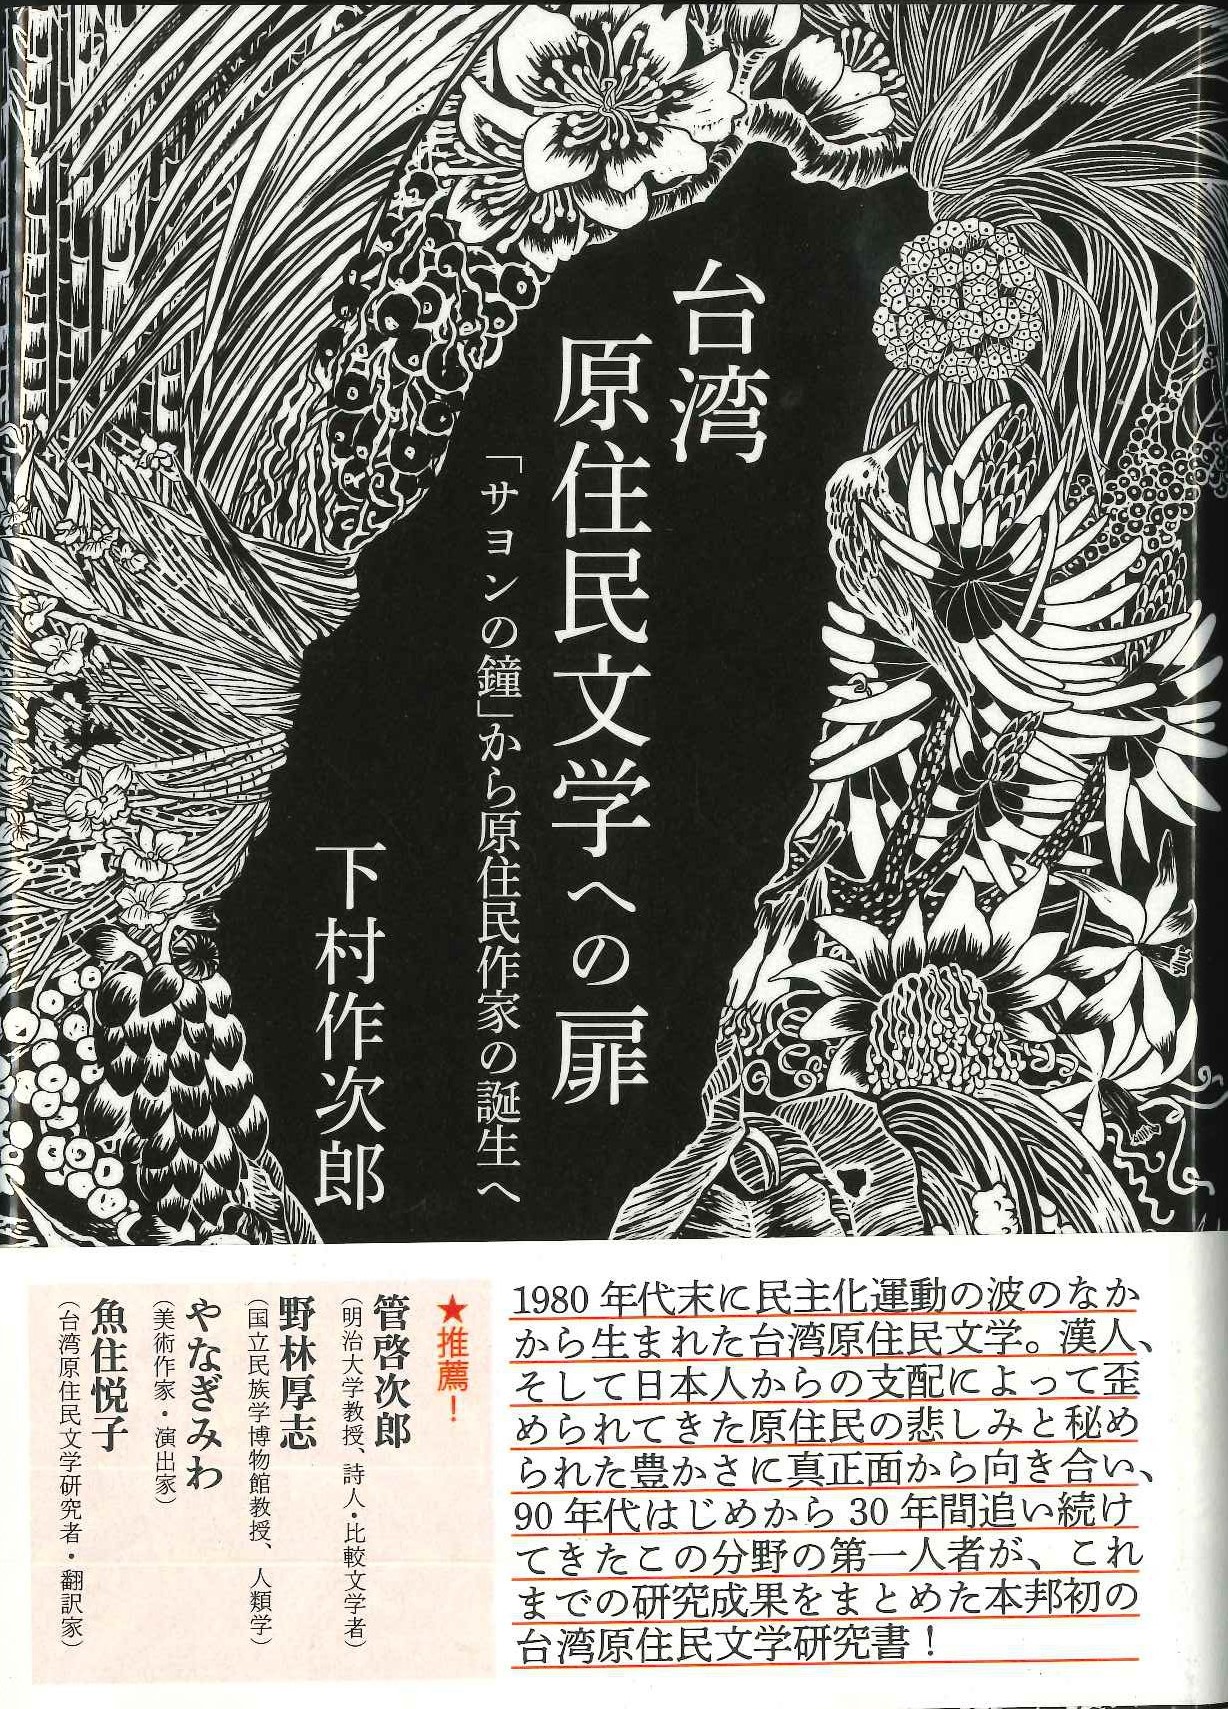 台湾
原住民文学への扉
「サヨンの鐘」から原住民作家の誕生へ
下村作次郎
1980年代末に民主化運動の波のなか
から生まれた台湾原住民文学。漢人、
そして日本人からの支配によって歪
められてきた原住民の悲しみと秘め
られた豊かさに真正面から向き合い、
90年代はじめから30年間追い続け
てきたこの分野の第一人者が、これ
までの研究成果をまとめた本邦初の
台湾原住民文学研究書！
★推薦！
管啓次郎
（明治大学教授、詩人・比較文学者）
野林厚志
（国立民族学博物館教授、人類学）
やなぎみわ
（美術作家・演出家）
魚住悦子
（台湾原住民文学研究者・翻訳家）